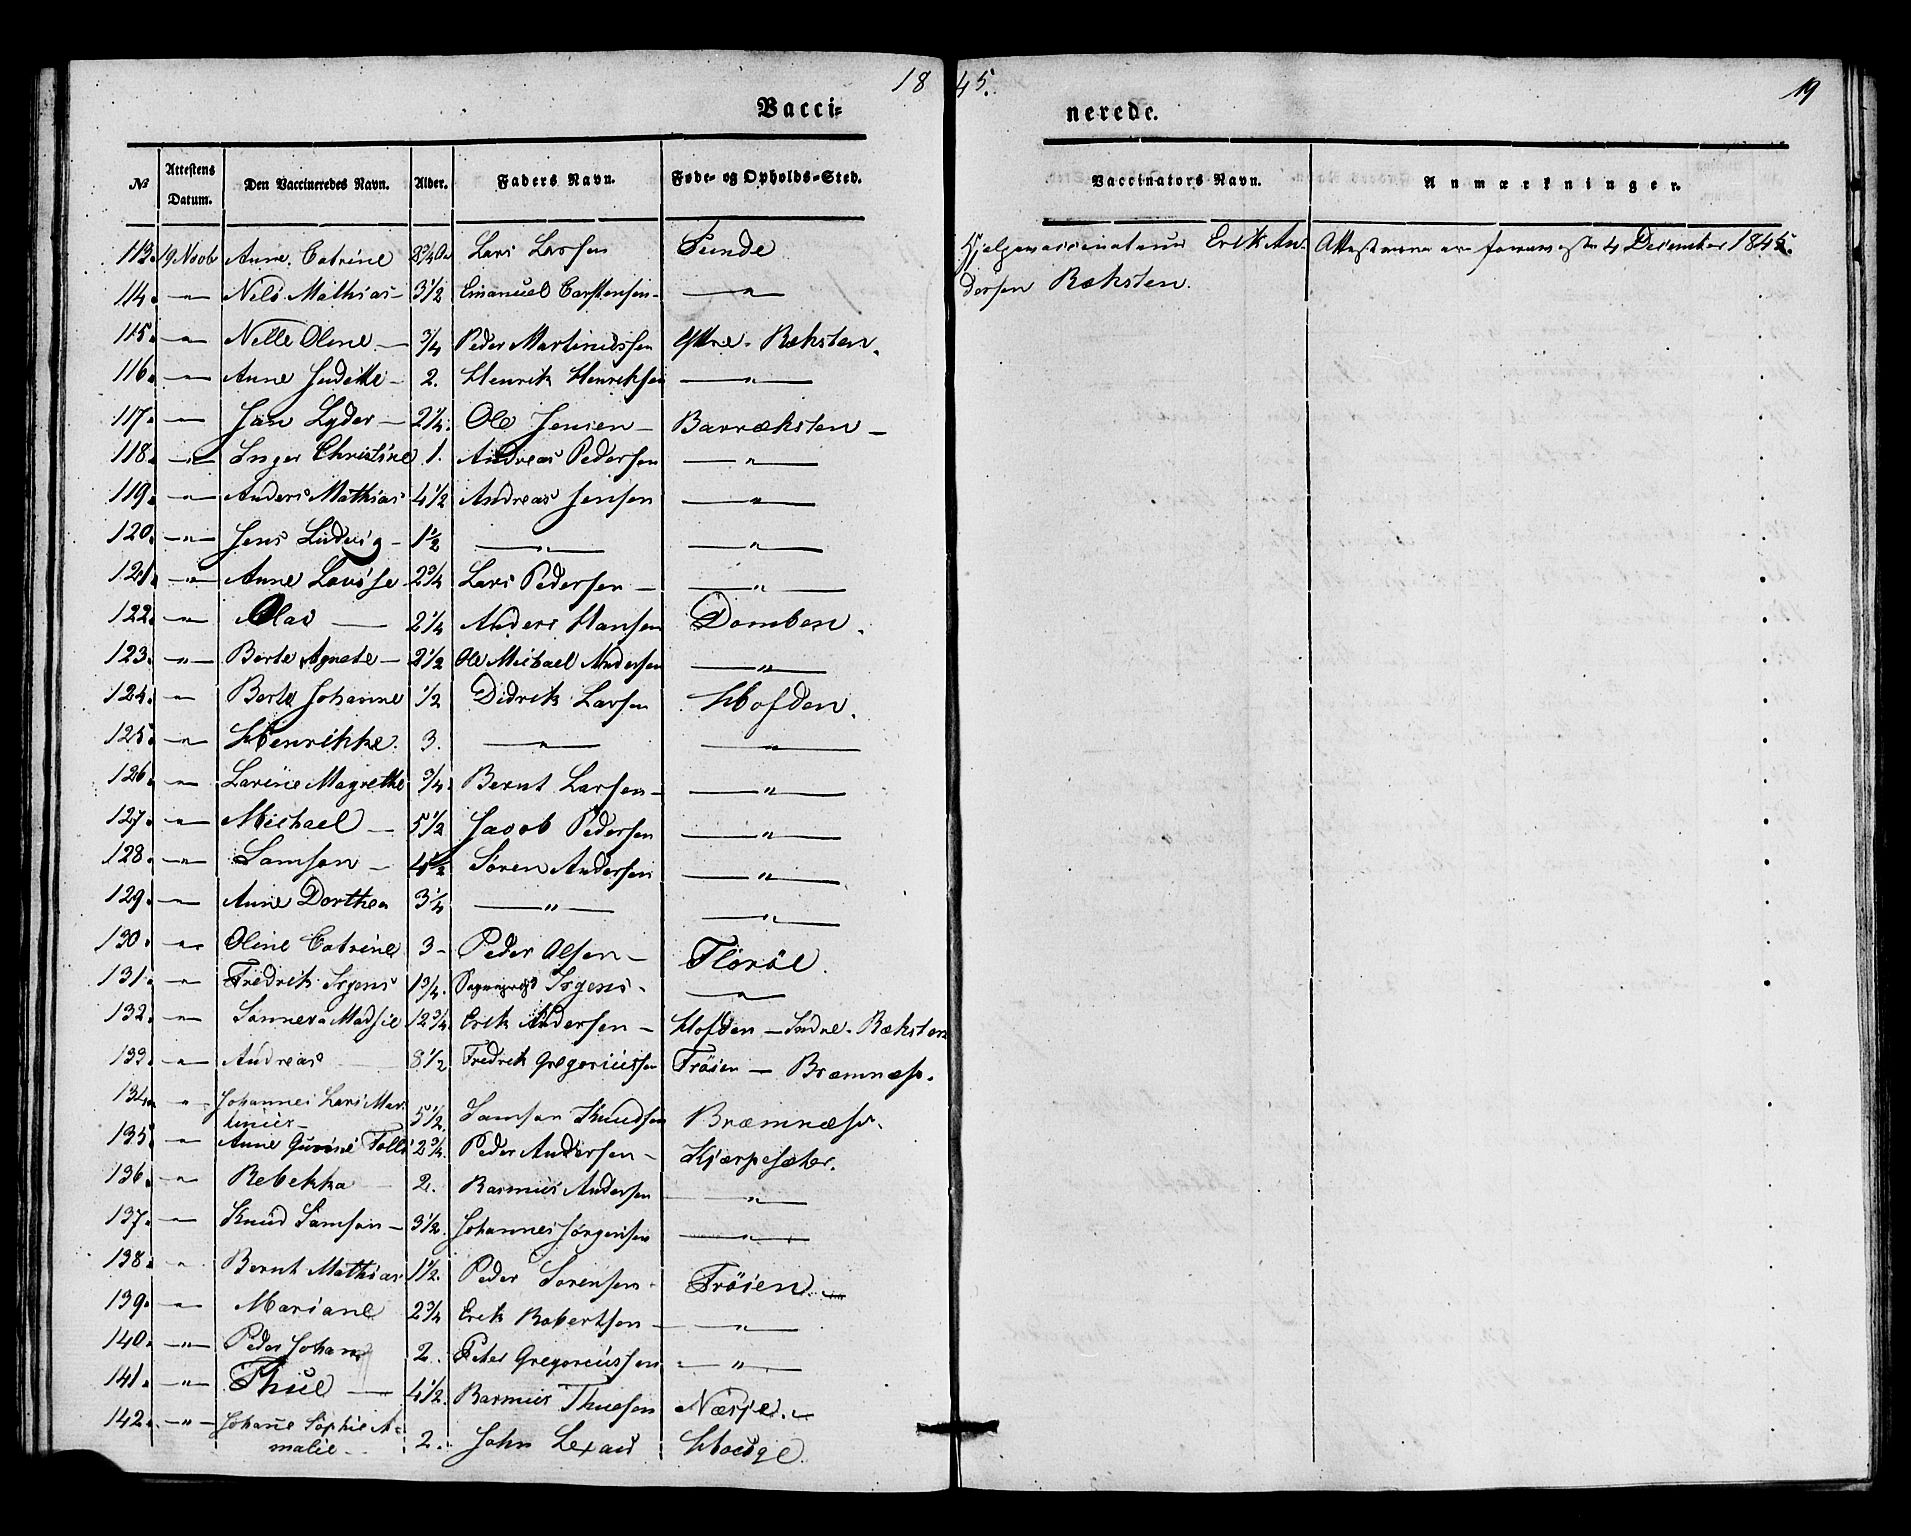 18 45.
19
Vacci= nerede.
№ Attestens Datum. Den Vaccineredes Navn. Alder. Faders Navn. Føde- og Opholds-Sted. Vaccinators Navn. Anmærkninger.
113. 19 Novb Anne Catrine 8 3/4 Lars Larsen Sunde Hjelpevaccinateur Erik An- Attesterne ere 4 December 1845.
114. -"- Nils Mathias- 3 1/2 Emanuel Carstensen- -"- dersen Ræksten.
115. -"- Nille Oline- 3/4 Peder Martinussen Yttre-Ræksten.
116. -"- Anne Juditte- 2. Henrik Henriksen -"-
117. -"- Jan Lyder- 2 1/4. Ole Jensen- Barræksten-
118. -"- Inger Christine 1. Andreas Pedersen -"-
119. -"- Anders Mathias 4 1/2 Andreas Jensen -"-
120. -"- Jens Ludvig- 1 1/2 -"- -"-
121. -"- Anne Lovise 2 3/4 Lars Pedersen- -"-
122. -"- Olav - 2 1/4 Anders Hansen Domben.
123. -"- Berte Agnete- 2 1/2 Ole Michael Andersen -"-
124. -"- Berte Johanne 1/2 Didrik Larsen Hofden.
125. -"- Henrikke. 3. -"- -"-
126. -"- Larine Magrethe 3/4. Bernt Larsen- -"-
127. -"- Michael- 5 1/2 Jacob Pedersen -"-
128. -"- Samson- 4 1/2 Søren Andersen -"-
129. -"- Anne Dorthea 3 1/4 -"- -"-
130. -"- Oline Catrine 3- Peder Olsen- Florøe.
131. -"- Fredrik Irgens 1 3/4. Irgens- -"-
132. -"- Sønneva Madsie 12 3/4 Erik Andersen- Hofden-Indre-Ræksten
133. -"- Andreas 8 1/2 Fredrik Gregoriussen Trøien- Bræmnæs.
134. -"- Johannes Lars Mar-
tinus- 5 1/2. Samson Knudsen Bræmnæs.
135. -"- Anne 2 3/4. Peder Andersen- Kjærpesæter.
136. -"- Rebekka 2. Rasmus Andersen -"-
137. -"- Knud Samson- 3 1/2. Johannes Jørgensen -"-
138. -"- Bernt Mathias 1 1/2. Peder Sørensen- Trøien.-
139. -"- Mariane 2 3/4 Erik Robertsen- -"-
140. -"- Peder Johan 2. Peter Gregoriussen -"-
141. -"- Thue- 4 1/2. Rasmus Thuesen Næsje.-
142. -"- Johane Sophie A-
malie- 2. John Lexau